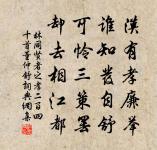 漢有孝廉舉
誰知發自舒
可憐三策罷
却去相江都
林同賢者之孝二百四
十首董仲舒詞典網集